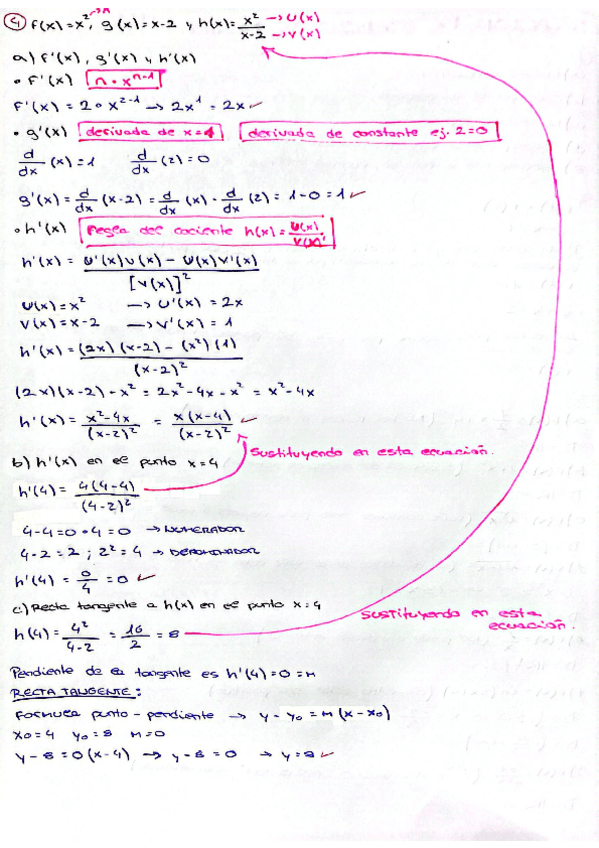 ④ f(x)=x²→n, g(x)=x-2 y h(x)=x²/x-2 →U(x) →V(x)
a) f'(x), g'(x) y h'(x)
• f'(x) n·xⁿ⁻¹
f'(x) = 2·x²⁻¹ → 2x¹ = 2x ✓
• g'(x) derivada de x=1 derivada de constante ej. 2=0
d/dx (x) = 1 d/dx (2) = 0
g'(x) = d/dx (x-2) = d/dx (x) - d/dx (2) = 1-0 = 1 ✓
• h'(x) Regla del cociente h(x)=U(x)/V(x)
h'(x) = U'(x)V(x) - U(x)V'(x) / [V(x)]²
U(x) = x² → U'(x) = 2x
V(x) = x-2 → V'(x) = 1
h'(x) = (2x)(x-2) - (x²)(1) / (x-2)²
(2x)(x-2) - x² = 2x² - 4x - x² = x² - 4x
h'(x) = x²-4x/(x-2)² = x(x-4)/(x-2)² ✓
Sustituyendo en esta ecuación.
b) h'(x) en el punto x=4
h'(4) = 4(4-4)/(4-2)²
4-4=0·4=0 → NUMERADOR
4-2=2; 2²=4 → DENOMINADOR
h'(4) = 0/4 = 0 ✓
c) Recta tangente a h(x) en el punto x=4
Sustituyendo en esta ecuación.
h(4) = 4²/4-2 = 16/2 = 8
Pendiente de la tangente es h'(4)=0=m
RECTA TANGENTE:
Formula punto-pendiente → y-y₀ = m(x-x₀)
x₀=4 y₀=8 m=0
y-8 = 0(x-4) → y-8=0 → y=8 ✓